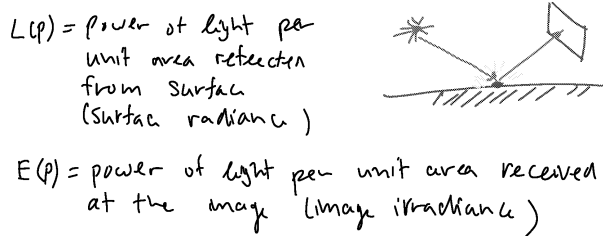 L(p) = power of light per
unit area reflected
from surface
(surface radiance)
E(p) = power of light per unit area received
at the image (image irradiance)